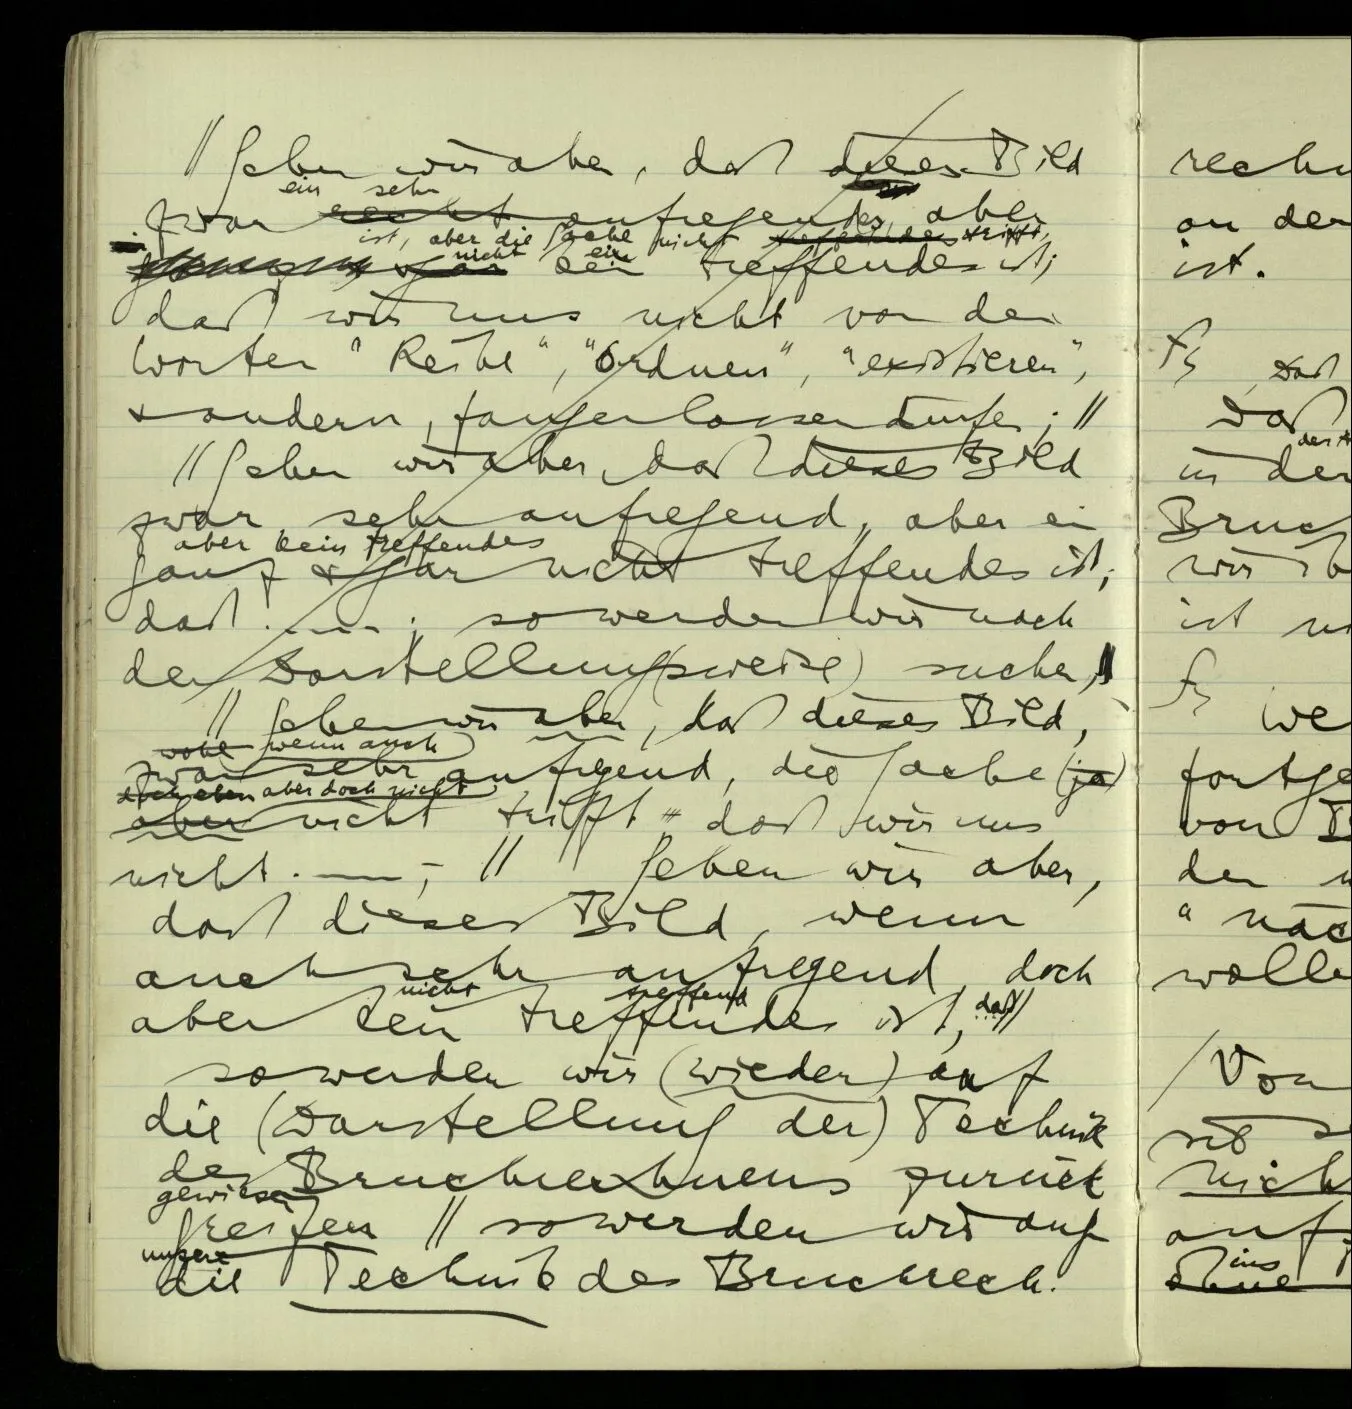 // Sehen wir aber, daß dieses Bild
ein sehr
zwar recht aufregendes, aber
ist, aber die Sache nicht trifft,
nicht ein
gar kein treffendes ist;
daß wir uns nicht von den
Worten "Reihe", "ordnen", "existieren",
& andern, fangen lassen dürfen; //
// Sehen wir aber, daß dieses Bild
zwar sehr aufregend, aber ein
aber kein treffendes
ganz & gar nicht treffendes ist;
daß . — — ; so werden wir nach
der Darstellung(sweise) suchen, //
// Sehen wir aber, daß dieses Bild,
wohl wenn auch
zwar sehr aufregend, die Sache (ja)
doch eben aber doch nicht
aber nicht trifft & daß wir uns
nicht . — — ; // Sehen wir aber,
daß dieses Bild, wenn
auch sehr aufregend, doch
nicht treffend
aber kein treffendes ist, daß //
so werden wir (wieder) auf
die (Darstellung der) Technik
des Bruchrechnens zurück
gewiesen
greifen // so werden wir auf
unsere
die Technik des Bruchrech.
rech
an der
ist.
Daß
Daß
in der
Bruc
wir
ist
We
fortge
von
der
"näc
wolle
/ Von
nich
auf
ins
ohne